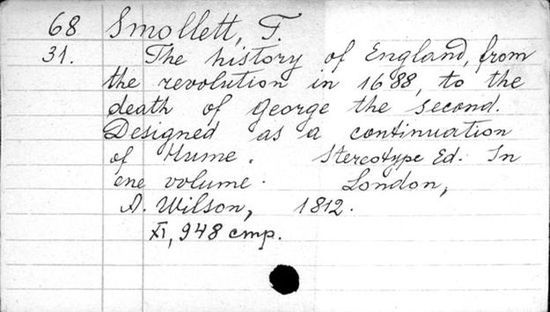 68 Smollett, T.
31. The history of England, from
the revolution in 1688, to the
death of George the second.
Designed as a continuation
of Hume. Stereotype Ed. In
one volume. London,
A. Wilson, 1812.
XI, 948 стр.